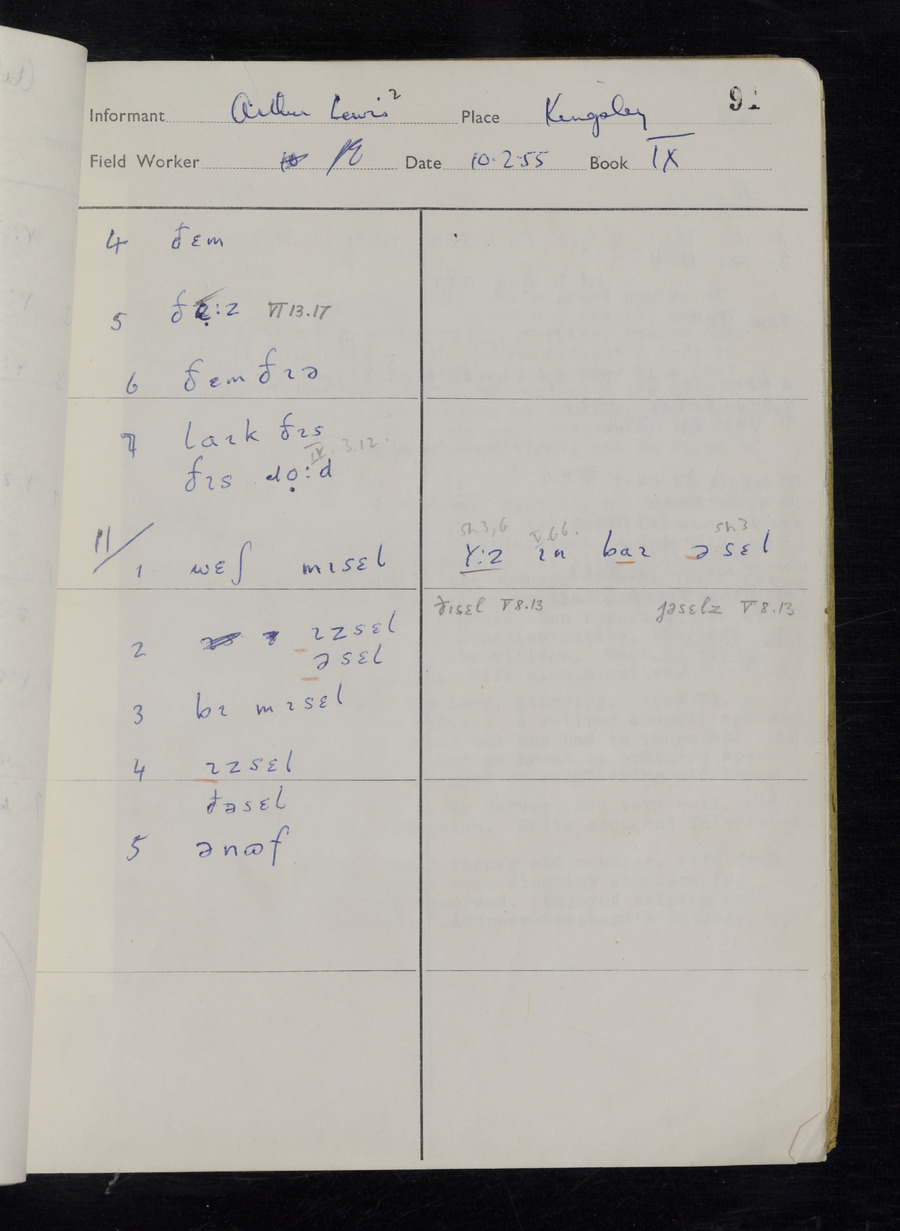 91
Informant Arthur Lewis² Place Kingsley
Field Worker Date 10.2.55 Book IX
4 ðɛm
5 ðẹ:z VI 13.17
6 ðɛm ðɪə
7 laɪk ðɪs
IX.3.12.
ðɪs dọ:d
11/
sh3,6 V.6.6. sh3
1 wɛʃ mɪsɛl ɪ:z ɪn baɪ əsɛl
ðɪsɛl V 8.13 jəsɛlz V 8.13
2 ɪzsɛl
əsɛl
3 bɪ mɪsɛl
4 ɪzsɛl
ðəsɛl
5 ənɷf